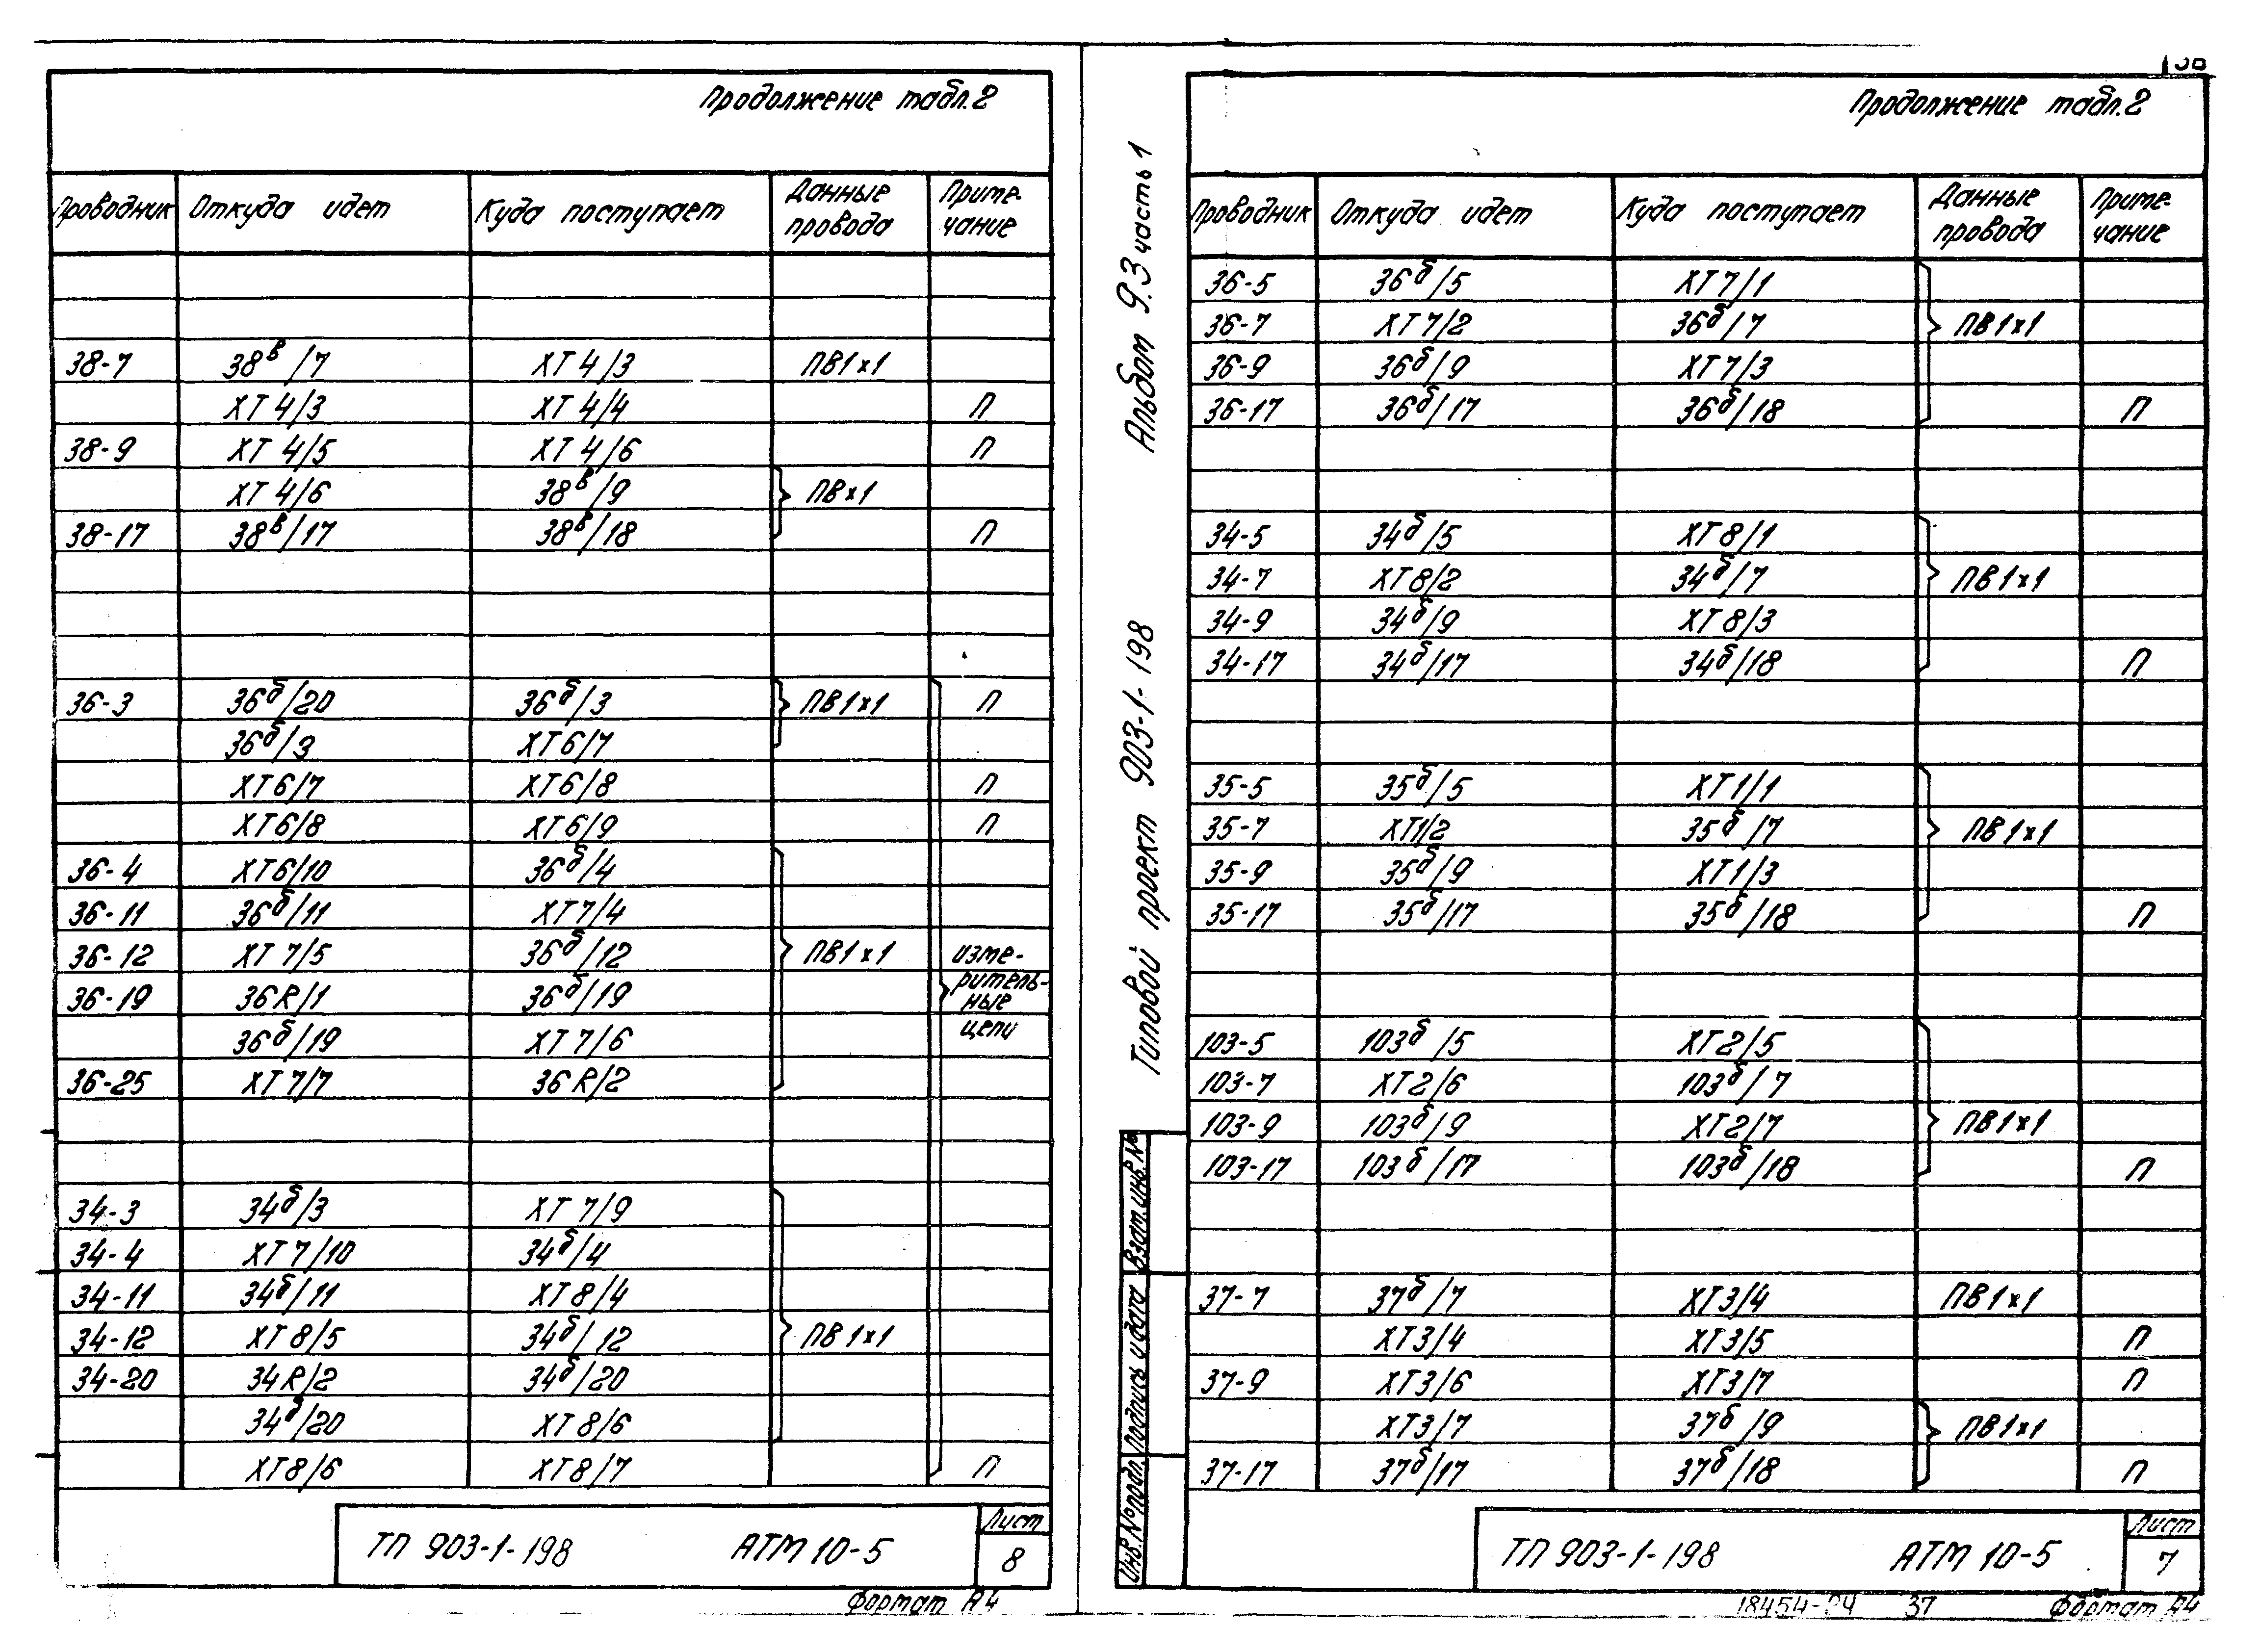 Продолжение табл.2
Проводник Откуда идет Куда поступает Данные провода Приме-чание
38-7 38в/7 ХТ4/3 ПВ1х1
ХТ4/3 ХТ4/4 П
38-9 ХТ4/5 ХТ4/6 П
ХТ4/6 38в/9 ПВх1
38-17 38в/17 38в/18 П
36-3 36б/20 36б/3 ПВ1х1 П
36б/3 ХТ6/7
ХТ6/7 ХТ6/8 П
ХТ6/8 ХТ6/9 П
36-4 ХТ6/10 36б/4
36-11 36б/11 ХТ7/4
36-12 ХТ7/5 36б/12 ПВ1х1 изме-
36-19 36R/1 36б/19 ритель-ные
36б/19 ХТ7/6 цепи
36-25 ХТ7/7 36R/2
34-3 34б/3 ХТ7/9
34-4 ХТ7/10 34б/4
34-11 34б/11 ХТ8/4
34-12 ХТ8/5 34б/12 ПВ1х1
34-20 34R/2 34б/20
34б/20 ХТ8/6
ХТ8/6 ХТ8/7 П
ТП 903-1-198 АТМ 10-5 Лист 8
Формат А4
Альбом 9.3 часть 1
Типовой проект 903-1-198
Взам. инв. №
Подпись и дата
Инв. № подл.
Продолжение табл.2
Проводник Откуда идет Куда поступает Данные провода Приме-чание
36-5 36б/5 ХТ7/1
36-7 ХТ7/2 36б/7 ПВ1х1
36-9 36б/9 ХТ7/3
36-17 36б/17 36б/18 П
34-5 34б/5 ХТ8/1
34-7 ХТ8/2 34б/7 ПВ1х1
34-9 34б/9 ХТ8/3
34-17 34б/17 34б/18 П
35-5 35б/5 ХТ1/1
35-7 ХТ1/2 35б/7 ПВ1х1
35-9 35б/9 ХТ1/3
35-17 35б/17 35б/18 П
103-5 103б/5 ХТ2/5
103-7 ХТ2/6 103б/7
103-9 103б/9 ХТ2/7 ПВ1х1
103-17 103б/17 103б/18 П
37-7 37б/7 ХТ3/4 ПВ1х1
ХТ3/4 ХТ3/5 П
37-9 ХТ3/6 ХТ3/7 П
ХТ3/7 37б/9 ПВ1х1
37-17 37б/17 37б/18 П
ТП 903-1-198 АТМ 10-5 Лист 7
37 Формат А4